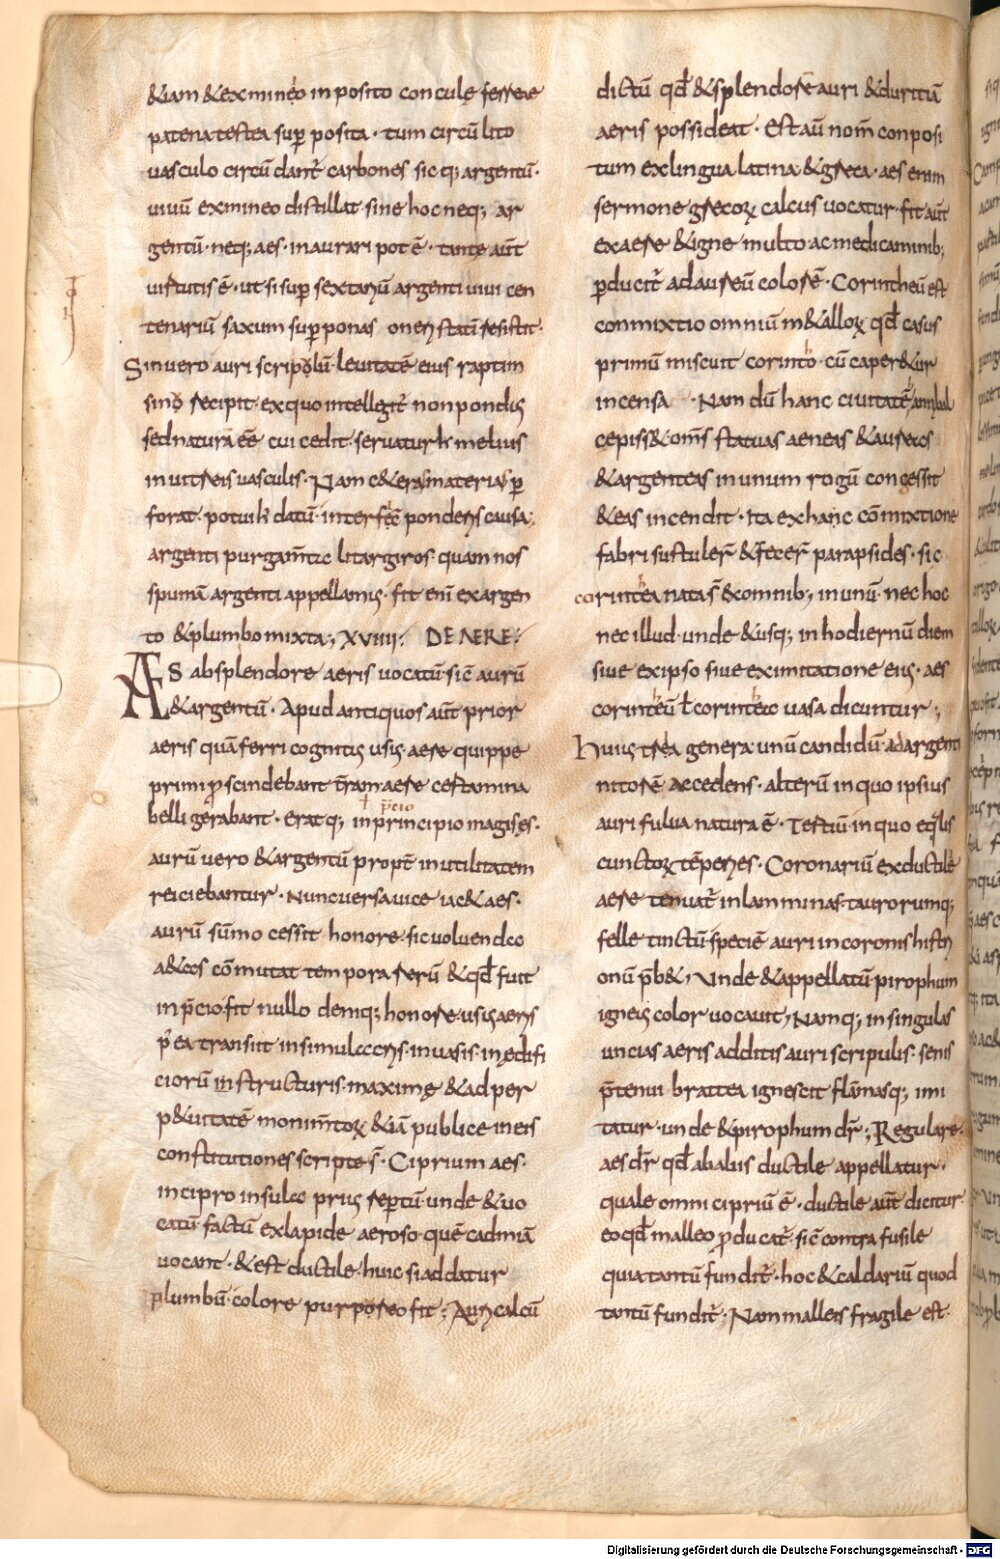 &iam &exmineo inposito conculę ferree
patenatestea suꝑ posita · tum circū lito
uasculo circū dant̄ carbones sicq; argentū ·
uiuū exmineo distillat · sine hoc neq; ar
gentū · neq; aes · inaurari pot ē · tante aut̄
uirtutis ē · ut si suꝑ sextariū argenti uiui cen
tenariū saxum suꝑponas oneri statū resistit ·
Sin uero auri scripolū · leuitatē eius raptim
sinō recipit · exquo intellegit̄ non pondus
sed naturā eē cui cedit · seruatur h melius
in uitreis uasculis · Nam c&eras materias ꝑ
forat · potui h datū · interfic̄ ponderis causa ;
argenti purgam̄tū litargiros quam nos
spumā argenti appellamus · fit eni exargen
to & plumbo mixta ; XVIIII : DE AERE :
AES absplendore aeris uocatū · sic̄ aurū
& argentū · Apud antiquos aut̄ prior
aeris quā ferri cognitus usus · aere quippe
primi ꝓscindebant t̄ram aere certamina
belli gerabant · Eratq; inprincipio magis aes ·
ł p̄cio
aurū uero & argentū propt̄ inutilitatem
reiciebantur · Nunc uersa uice iac& aes ·
aurū sūmo cessit honore · sic uoluenda
a&as cōmutat tempora rerū & qđ fuit
in p̄cio fit nullo deniq; honore · usus aeris
p̄ ea transiit insimulacris · inuasis · inędifi
ciorū instructuris · maximę & ad per
p&uitatē monim̄torꝝ &iā publice in eis
constitutiones scripte s̄ · Ciprium aes ·
incipro insula prius reꝑtū unde &uo
catū factū exlapide aeroso quē cadmiā
uocant · & est ductile · huic si addatur
plumbū · colore purporeo fit ; Auricalcū
dictū qđ &splendorē auri & duritiā
aeris possideat · Est aū nom̄ conposi
tum exlingua latina & greca · aes enim
sermone grecorꝝ calcus uocatur · fit aut̄
exaere & igne multo ac medicaminib;
ꝑducit̄ ad aureū colorē · Corintheū est
conmixtio omniū m&allorꝝ qđ casus
primū miscuit corinto · cū caper&ur
incensa · Nam dū hanc ciuitatē annibal
cepiss& om̄s statuas aeneas & aureas
& argenteas inunum rogū congessit
& eas incendit · Ita exhanc cōmixtione
fabri sustuler̄ & fecer̄ parapsides · sic
corintea nata s̄ & comnib; inunū · nec hoc
nec illud · unde & usq; inhodiernū diem
siue exipso siue eximitatione eius · aes
corinteū ł corintea uasa dicuntur ;
huius tria genera · unū candidū · ad argenti
nitorē accedens · alterū inquo ipsius
auri fulua natura ē · Tertiū inquo eq̄lis
cunctorꝝ tēperies · Coronariū exductile
aere tenuat̄ inlamminas taurorumq;
felle tinctū speciē auri incoronis histri
onū p̄b& ; Vnde & appellatū pirophum
igneus color uocauit ; Namq; insingulas
uncias aeris additis auri scripulis · senis
p̄tenui brattea ignescit flāmasq; imi
tatur · unde & pirophum dr̄ ; Regulare ·
aes dr̄ qđ abalus ductile appellatur ·
quale omni cipriū ē · ductile aut̄ dicitur
eo qđ malleo ꝓducat̄ · sic̄ contra fusile
quia tantū fundit̄ · hoc & caldariū quod
tantū fundit̄ · Nam malleis fragile est ·
Digitalisierung gefördert durch die Deutsche Forschungsgemeinschaft - DFG